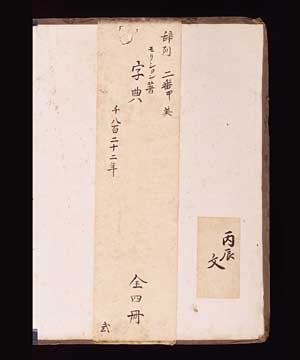 辞列 二番甲 英
モリソン著
字典
千八百二十二年
全四冊
弐
丙辰
文